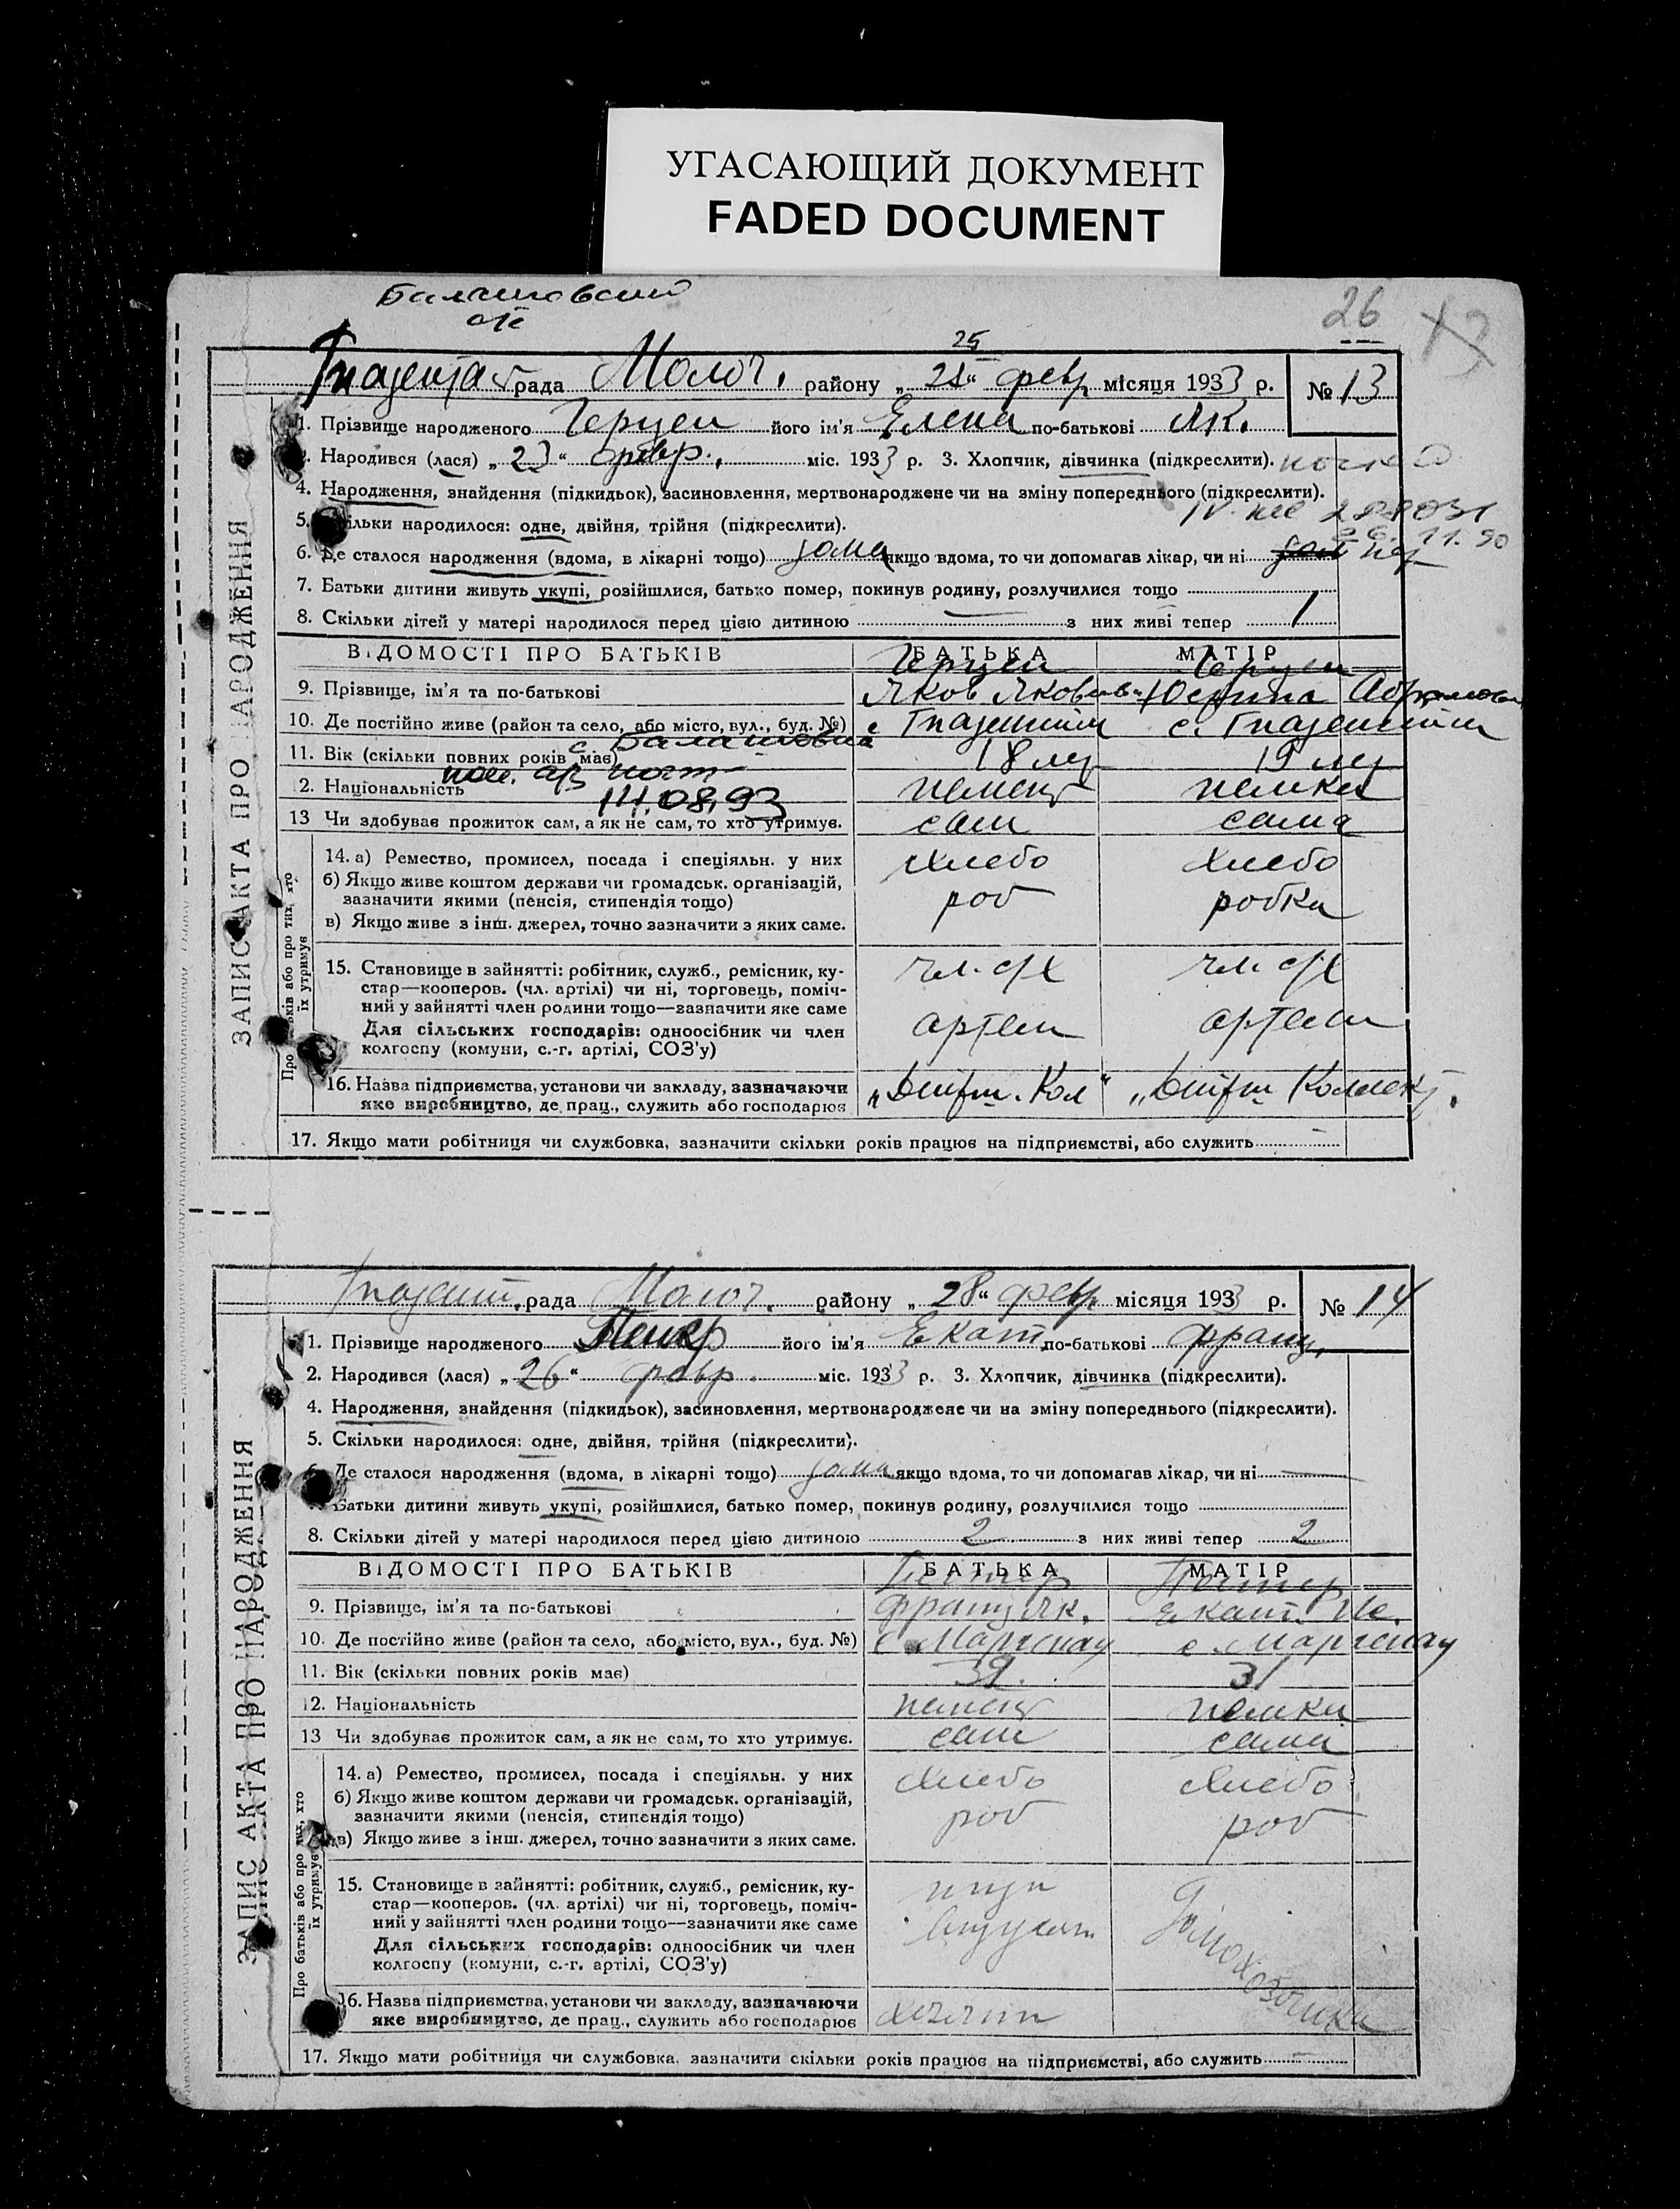 УГАСАЮЩИЙ ДОКУМЕНТ
FADED DOCUMENT
26
25
рада Молоч. району „ 28 “ февр місяця 1933 р. № 13
ЗАПИС АКТА ПРО НАРОДЖЕННЯ
1. Прізвище народженого Герцен його ім'я Елена по-батькові Як.
Народився (лася) „ 23 “ февр. міс. 1933 р. 3. Хлопчик, дівчинка (підкреслити).
4. Народження, знайдення (підкидьок), засиновлення, мертвонароджене чи на зміну попереднього (підкреслити).
5. Скільки народилося: одне, двійня, трійня (підкреслити).
6. Де сталося народження (вдома, в лікарні тощо) дома якщо вдома, то чи допомагав лікар, чи ні
7. Батьки дитини живуть укупі, розійшлися, батько помер, покинув родину, розлучилися тощо
8. Скільки дітей у матері народилося перед цією дитиною — з них живі тепер 1
ВІДОМОСТІ ПРО БАТЬКІВ БАТЬКА МАТІР
Герцен Герцен
9. Прізвище, ім'я та по-батькові Яков Яковлев. Юстина
10. Де постійно живе (район та село, або місто, вул., буд. №) с. с.
11. Вік (скільки повних років має) 18 лет 19 лет
12. Національність немец немка
14.08.93
13 Чи здобуває прожиток сам, а як не сам, то хто утримує. сам сама
Про батьків або про тих, хто їх утримує
14. а) Ремество, промисел, посада і спеціяльн. у них хлебо хлебо
б) Якщо живе коштом держави чи громадськ. організацій,
зазначити якими (пенсія, стипендія тощо) роб робка
в) Якщо живе з інш. джерел, точно зазначити з яких саме.
15. Становище в зайнятті: робітник, служб., ремісник, ку- чл. с/х чл. с/х
стар—кооперов. (чл. артілі) чи ні, торговець, поміч-
ний у зайнятті член родини тощо—зазначити яке саме
Для сільських господарів: одноосібник чи член артели артели
колгоспу (комуни, с.-г. артілі, СОЗ'у)
16. Назва підприємства, установи чи закладу, зазначаючи
яке виробництво, де прац., служить або господарює
17. Якщо мати робітниця чи службовка, зазначити скільки років працює на підприємстві, або служить —
рада Молоч. району „ 28 “ февр. місяця 1933 р. № 14
ЗАПИС АКТА ПРО НАРОДЖЕННЯ
1. Прізвище народженого його ім'я Екат. по-батькові Франц.
2. Народився (лася) „ 26 “ февр. міс. 1933 р. 3. Хлопчик, дівчинка (підкреслити).
4. Народження, знайдення (підкидьок), засиновлення, мертвонароджене чи на зміну попереднього (підкреслити).
5. Скільки народилося: одне, двійня, трійня (підкреслити).
6. Де сталося народження (вдома, в лікарні тощо) дома якщо вдома, то чи допомагав лікар, чи ні —
Батьки дитини живуть укупі, розійшлися, батько помер, покинув родину, розлучилися тощо
8. Скільки дітей у матері народилося перед цією дитиною 2 з них живі тепер 2
ВІДОМОСТІ ПРО БАТЬКІВ БАТЬКА МАТІР
9. Прізвище, ім'я та по-батькові Франц Як. Екат.
10. Де постійно живе (район та село, або місто, вул., буд. №) с. Маргенау с. Маргенау
11. Вік (скільки повних років має) 31
12. Національність немец немка
13 Чи здобуває прожиток сам, а як не сам, то хто утримує. сам сама
Про батьків або про тих, хто їх утримує
14. а) Ремество, промисел, посада і спеціяльн. у них хлебо хлебо
б) Якщо живе коштом держави чи громадськ. організацій,
зазначити якими (пенсія, стипендія тощо) роб роб
в) Якщо живе з інш. джерел, точно зазначити з яких саме.
15. Становище в зайнятті: робітник, служб., ремісник, ку- инди
стар—кооперов. (чл. артілі) чи ні, торговець, поміч-
ний у зайнятті член родини тощо—зазначити яке саме домохозяйка
Для сільських господарів: одноосібник чи член
колгоспу (комуни, с.-г. артілі, СОЗ'у)
16. Назва підприємства, установи чи закладу, зазначаючи
яке виробництво, де прац., служить або господарює
17. Якщо мати робітниця чи службовка, зазначити скільки років працює на підприємстві, або служить —